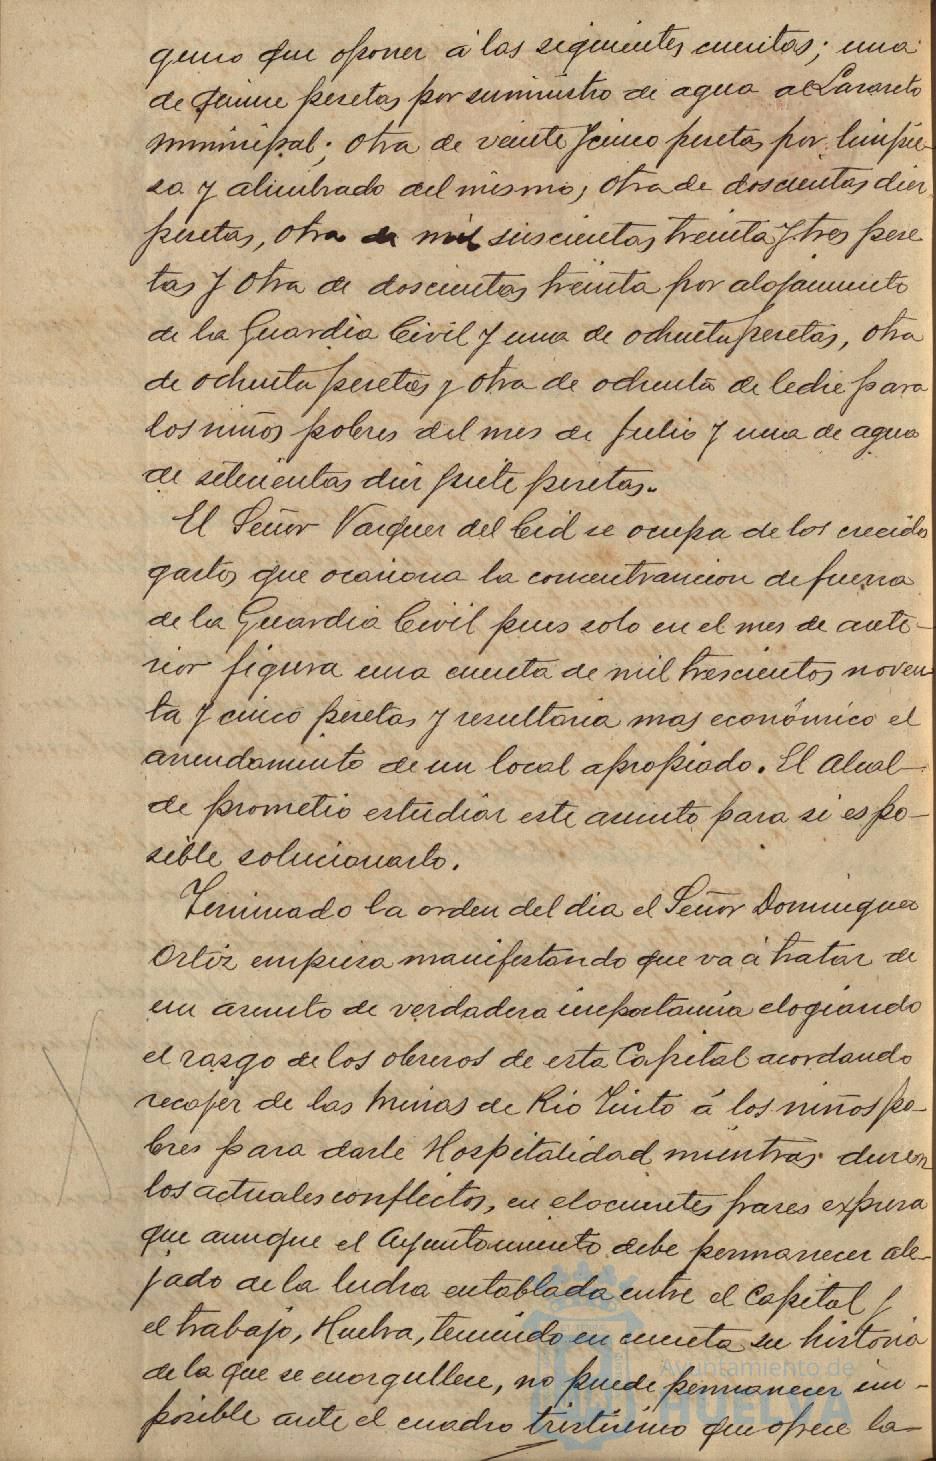 guno que oponer á las siguientes cuentas; una
de quince pesetas por suministro de agua al Lazareto
municipal; otra de veinte y cinco pesetas por limpie-
za y alumbrado del mismo; otra de doscientas diez
pesetas, otra de mil seiscientas treinta y tres pese
tas y otra de doscientas treinta por alojamiento
de la Guardia Civil y una de ochenta pesetas, otra
de ochenta pesetas y otra de ochenta de leche para
los niños pobres del mes de Julio y una de agua
de setecientas diez y siete pesetas.
El Señor Vazquez del Cid se ocupa de los crecidos
gastos que ocasiona la concentrancion de fuerza
de la Guardia Civil pues solo en el mes de ante-
rior figura una cuenta de mil trescientos noven
ta y cinco pesetas y resultaria mas económico el
arrendamiento de un local apropiado. El Alcal-
de prometio estudiar este asunto para si es po-
sible solucionarlo.
Terminado la orden del dia el Señor Dominguez
Ortiz empieza manifestando que va á tratar de
un asunto de verdadera importancia elogiando
el rasgo de los obreros de esta Capital acordando
recojer de las Minas de Rio Tinto á los niños po-
bres para darle Hospitalidad mientras duren
los actuales conflictos, en elocuentes frases expresa
que aunque el Ayuntamiento debe permanecer ale-
jado de la lucha entablada entre el Capital y
el trabajo, Huelva, teniendo en cuenta su historia
de la que se enorgullece, no puede permanecer im-
posible ante el cuadro tristisimo que ofrece la
Ayuntamiento de
HUELVA